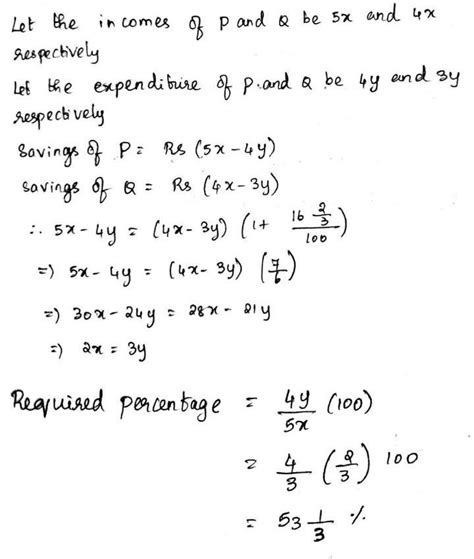 Let the incomes of P and Q be 5x and 4x
respectively
Let the expenditure of P and Q be 4y and 3y
respectively
Savings of P = Rs (5x - 4y)
Savings of Q = Rs (4x - 3y)
∴ 5x - 4y = (4x - 3y) (1 + 16 2/3 / 100)
=) 5x - 4y = (4x - 3y) (7/6)
=) 30x - 24y = 28x - 21y
=) 2x = 3y
Required percentage = 4y/5x (100)
= 4/3 (2/3) 100
= 53 1/3 %